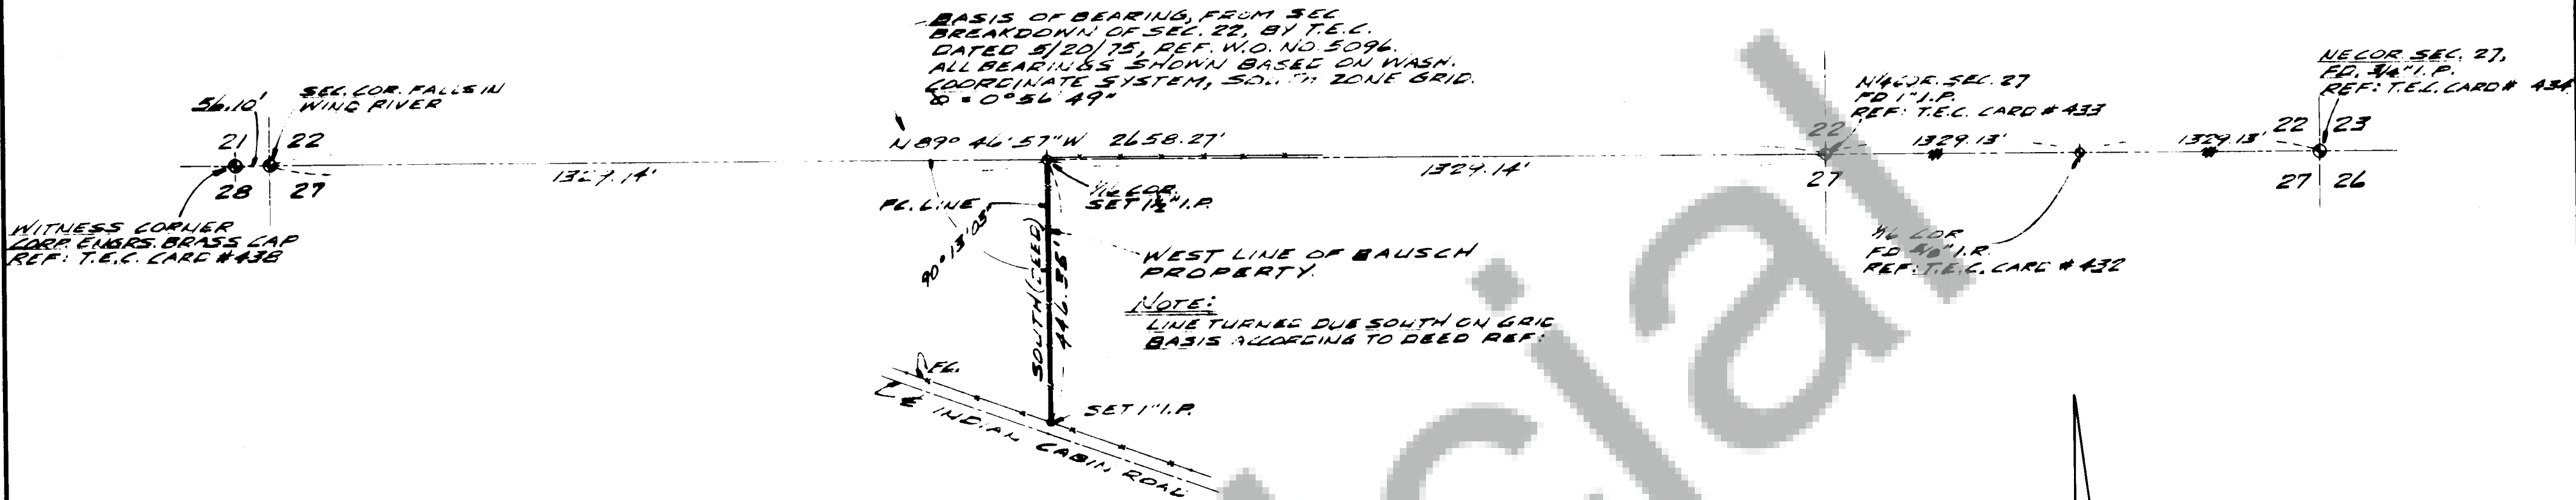 BASIS OF BEARING, FROM SEC
BREAKDOWN OF SEC. 22, BY T.E.C.
DATED 5/20/75, REF. W.O. NO. 5096.
ALL BEARINGS SHOWN BASED ON WASH.
COORDINATE SYSTEM, SOUTH ZONE GRID.
= 0° 56' 49"
56.10'
SEC. COR. FALLS IN
WIND RIVER
21 22
28 27
WITNESS CORNER
CORP. ENGRS. BRASS CAP
REF: T.E.C. CARD #438
1329.14'
N 89° 46' 57" W 2658.27'
1329.14'
1/16 COR.
SET 1½" I.P.
FC. LINE
90° 13' 03"
SOUTH (DEED)
WEST LINE OF BAUSCH
PROPERTY.
NOTE:
LINE TURNED DUE SOUTH ON GRID
BASIS ACCORDING TO DEED REF:
FC.
SET 1" I.P.
℄ INDIAN CABIN ROAD
N¼ COR. SEC. 27
FD 1" I.P.
REF: T.E.C. CARD #433
22
27
1329.13'
1329.13'
1/16 COR
FD I.R.
REF: T.E.C. CARD #432
NE COR. SEC. 27,
FD. 3/4" I.P.
REF: T.E.C. CARD # 434
22 23
27 26
cial